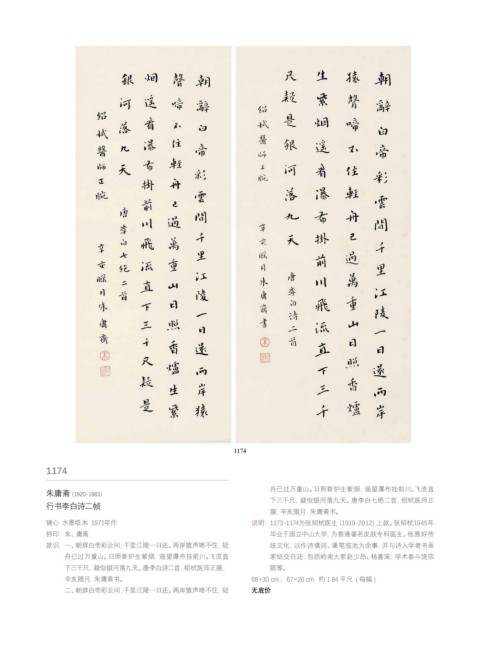 朝辭白帝彩雲間千里江陵一日還兩岸猿
聲啼不住輕舟已過萬重山日照香爐生紫
烟遙看瀑布掛前川飛流直下三千尺疑是
銀河落九天 唐李白七絕二首
紹栻醫師正腕 辛亥臘月朱庸齋
朝辭白帝彩雲間千里江陵一日還兩岸
猿聲啼不住輕舟已過萬重山日照香爐
生紫烟遙看瀑布掛前川飛流直下三千
尺疑是銀河落九天 唐李白詩二首
紹栻醫師正腕 辛亥臘月朱庸齋書
1174
1174
朱庸斋 (1920-1983)
行书李白诗二帧
镜心 水墨纸本 1971年作
钤印: 朱、庸斋
款识: 一、朝辞白帝彩云间,千里江陵一日还。两岸猿声啼不住,轻
舟已过万重山。日照香炉生紫烟,遥望瀑布挂前川。飞流直
下三千尺,疑似银河落九天。唐李白诗二首,绍栻医师正腕,
辛亥腊月,朱庸斋书。
二、朝辞白帝彩云间,千里江陵一日还。两岸猿声啼不住,轻
舟已过万重山。日照香炉生紫烟,遥望瀑布挂前川。飞流直
下三千尺,疑似银河落九天。唐李白七绝二首,绍栻医师正
腕,辛亥腊月,朱庸斋书。
说明: 1173-1174为张绍栻医生(1919-2012)上款。张绍栻1945年
毕业于国立中山大学,为香港著名皮肤专科医生。他雅好传
统文化,以作诗填词、秉笔临池为余事,并与诗人学者书画
家结交往还,包括岭南大家赵少昂、杨善深,学术泰斗饶宗
颐等。
68×30 cm.、67×26 cm. 约1.84平尺(每幅)
无底价